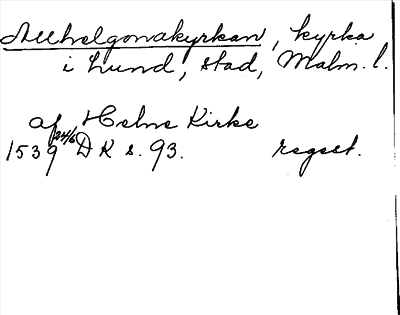 Allhelgonakyrkan, kyrka
i Lund, stad, Malm. l.
af Helne Kirke
1539 24/6 DK s. 93. regest.